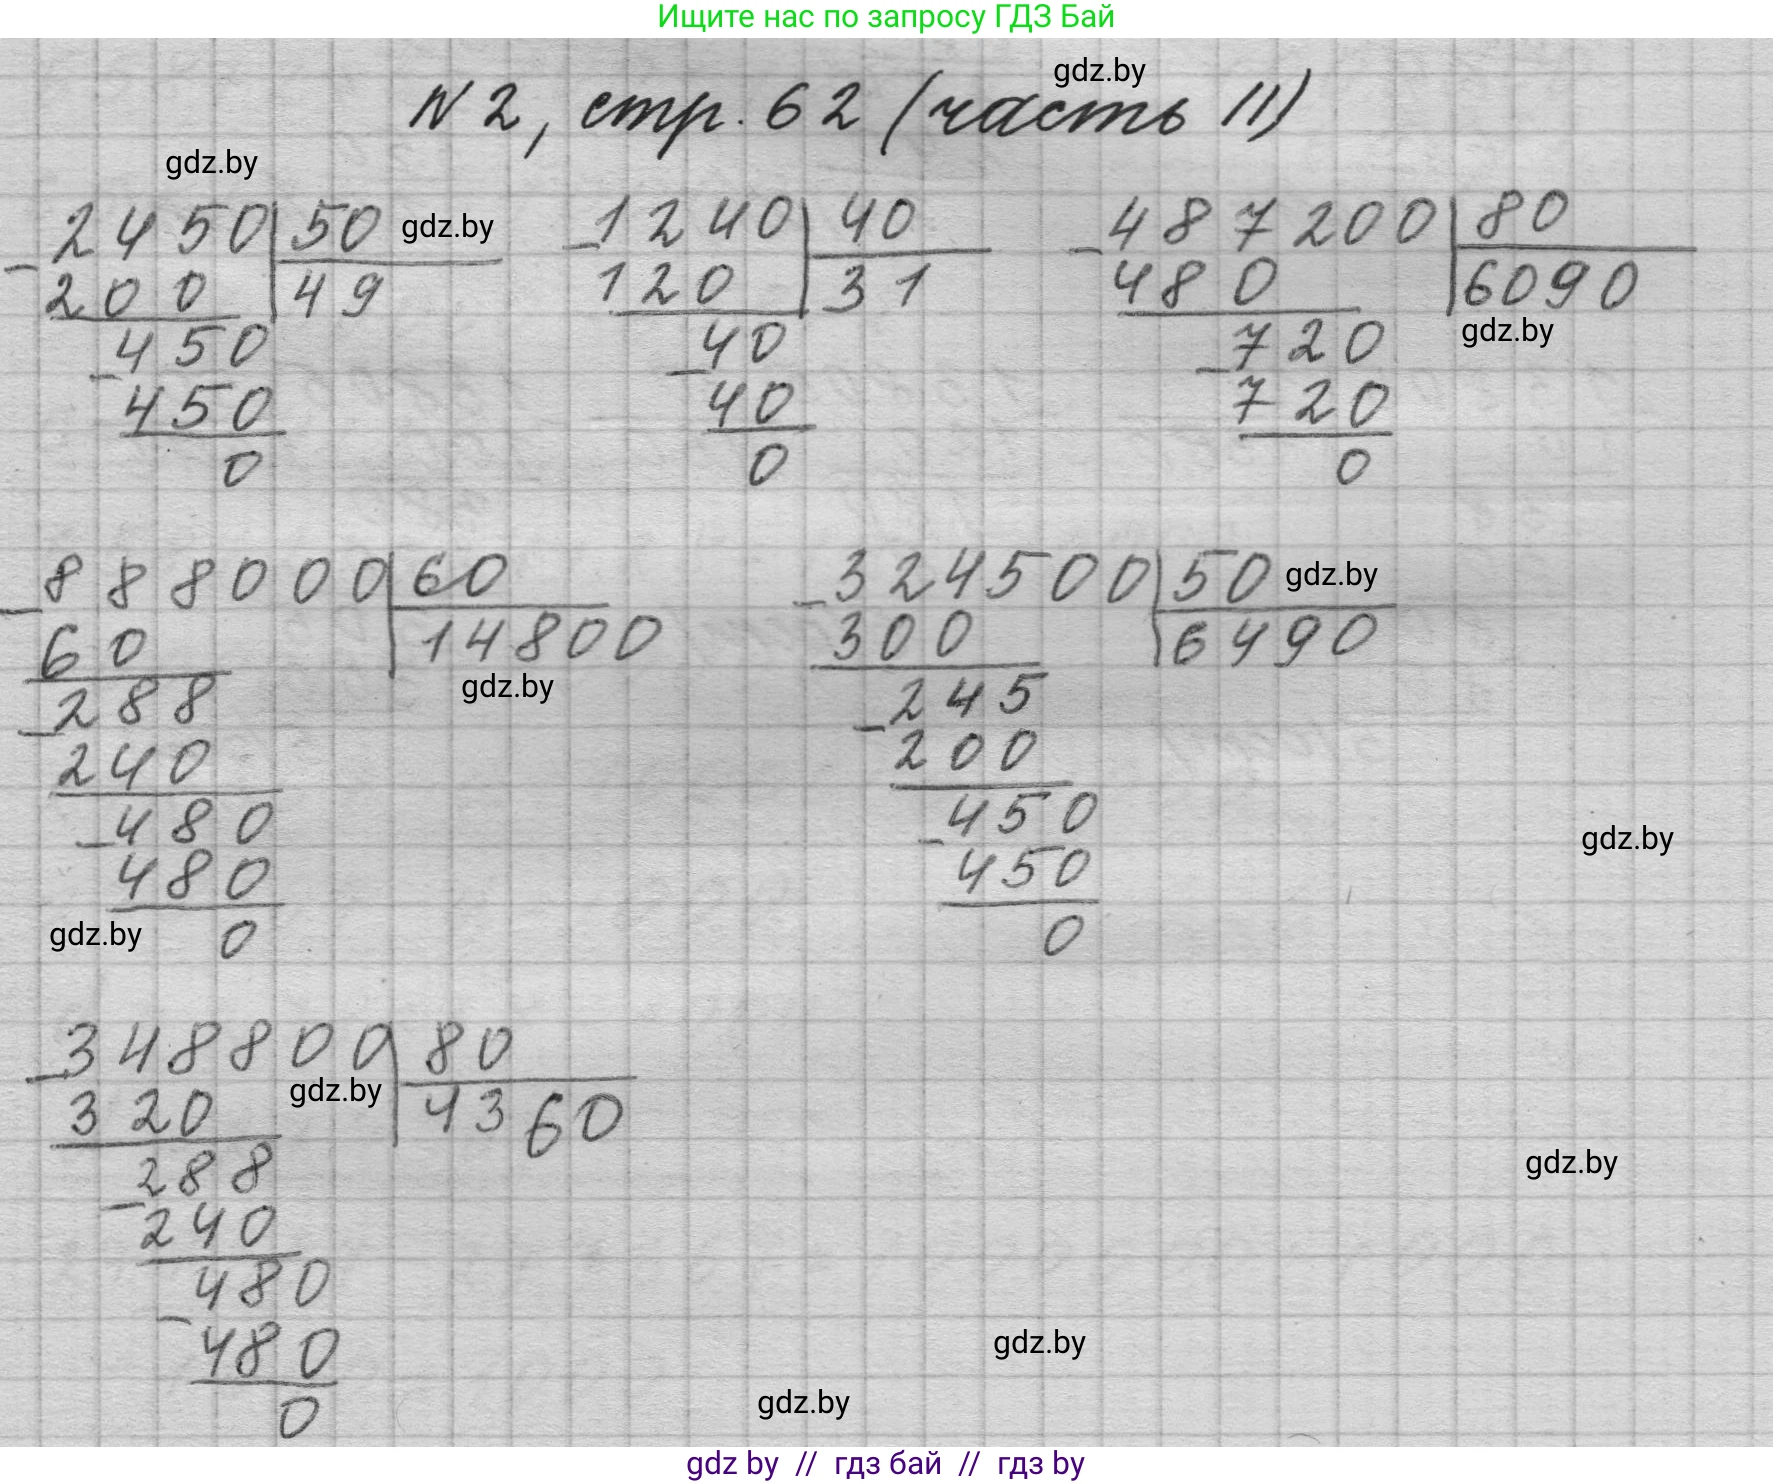 Ищите нас по запросу ГДЗ Бай
gdz.by
N 2, стр. 62 (часть II)
gdz.by
2450 50 gdz.by 1240 40 487200 80
- 200 49 - 120 31 - 480 6090
gdz.by
450 40 720
- 450 - 40 - 720
0 0 0
888000 60 324500 50 gdz.by
- 60 14800 - 300 6490
gdz.by
288 245
- 240 - 200
480 450
gdz.by
- 480 - 450
gdz.by 0 0
348800 80
- gdz.by
320 4360
gdz.by
288
- 240
480
- gdz.by
480
gdz.by
0
gdz by // гдз бай // гдз by